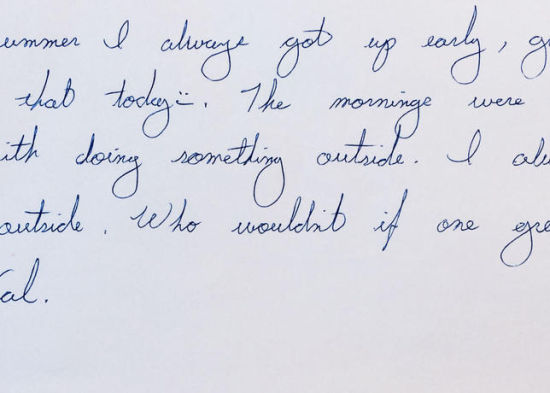 ummer I always got up early, g
that today :-. The morninge were
ith doing something outside. I alw
outside. Who wouldn't if one gre
al.